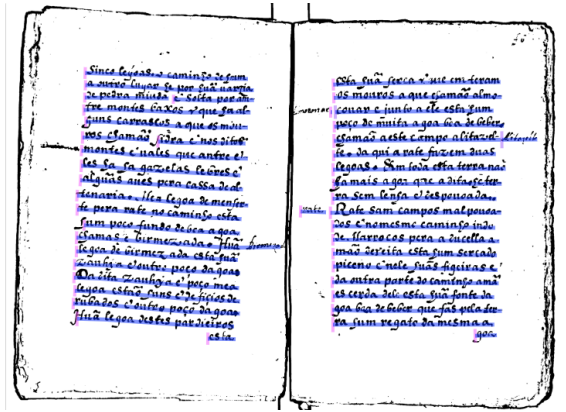 sinco legoas. o caminho de hum
a outro lugar he por huã varzia
de pedra miuda e solta por an-
tre montes baxos e que ha al-
guns carrascos a que os mou-
ros chamão sidra e nos ditos
montes e vales que antre e-
les ha ha gazelas lebres e
alguãs aves pera cassa de al-
tenaria. hũa legoa de
te pera rate no caminho esta
hum poço fundo de boa agoa
chamase birmezada. huã
legoa de birmezada esta huã
zauhia e outro poço dagoa
da dita zauhia e poço mea
legoa estão huns edefiçios de
rubados e outro poço dagoa
huã legoa destes pardieiros
esta
esta huã serca em que enteram
os mouros a que chamão almo-
couar e junto a ele esta hum
poço de muita agoa boa de beber
chamão a este campo
te. daqui a rate fazem duas
legoas. Em toda esta terra não
ha mais agoa que a dita he ter-
ra sem lenha e despouoada.
rate
Rate sam campos mal pouoa-
dos e no mesmo caminho indo
de Marrocos pera a
mão dereita esta hum sercado
piceno e nole huãs figeiras e
da outra porte do caminho
esta huã fonte da
goa boa de beber que fas pela ter-
ra hum regato da mesma a
goa